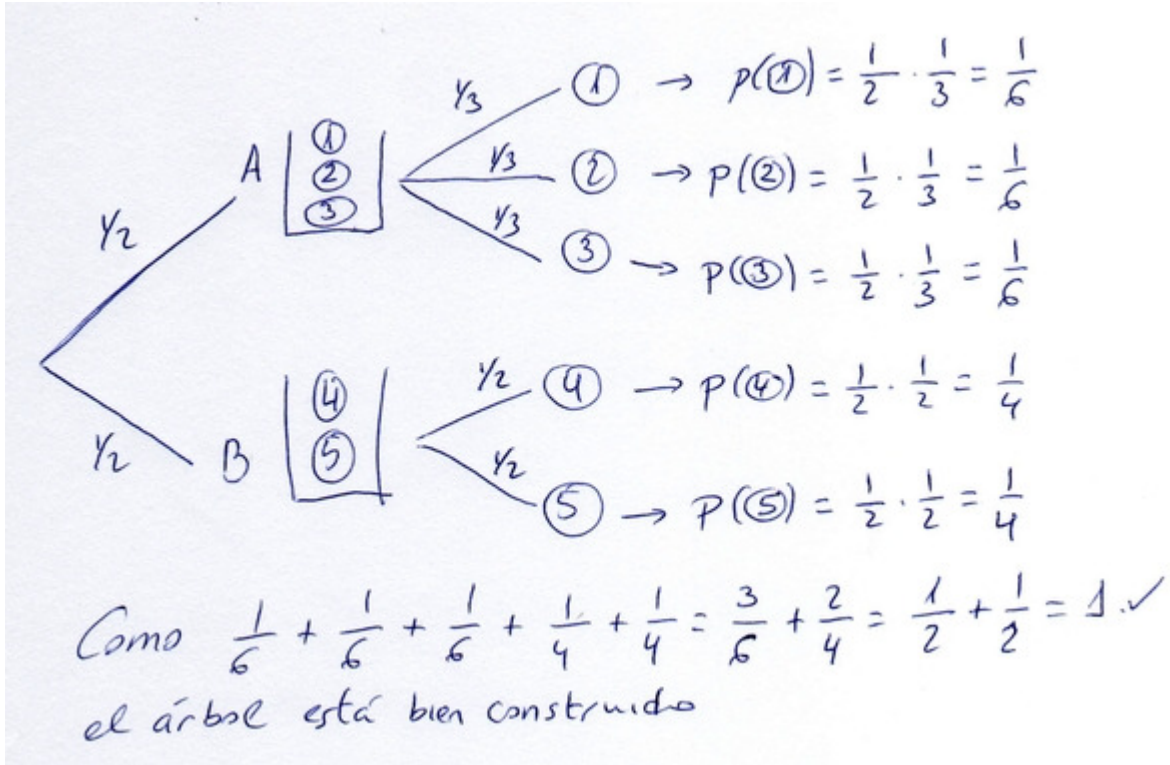 1/3 ① → p(①) = 1/2 · 1/3 = 1/6
A ① ② ③ 1/3 ② → p(②) = 1/2 · 1/3 = 1/6
1/2 1/3 ③ → p(③) = 1/2 · 1/3 = 1/6
1/2 ④ → p(④) = 1/2 · 1/2 = 1/4
1/2 B ④ ⑤ 1/2 ⑤ → p(⑤) = 1/2 · 1/2 = 1/4
Como 1/6 + 1/6 + 1/6 + 1/4 + 1/4 = 3/6 + 2/4 = 1/2 + 1/2 = 1. ✓
el árbol está bien construido